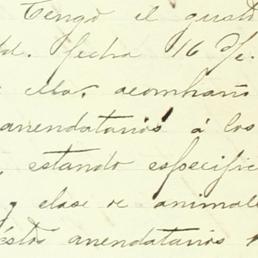 Tengo el gusto
fecha 16 d/c.
ella, acompaño
arrendatarios á los
, estando especific
y clase de animale
éstos arrendatarios